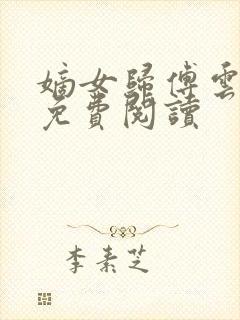 嫡女歸傅雲
免費閱讀
李素芝